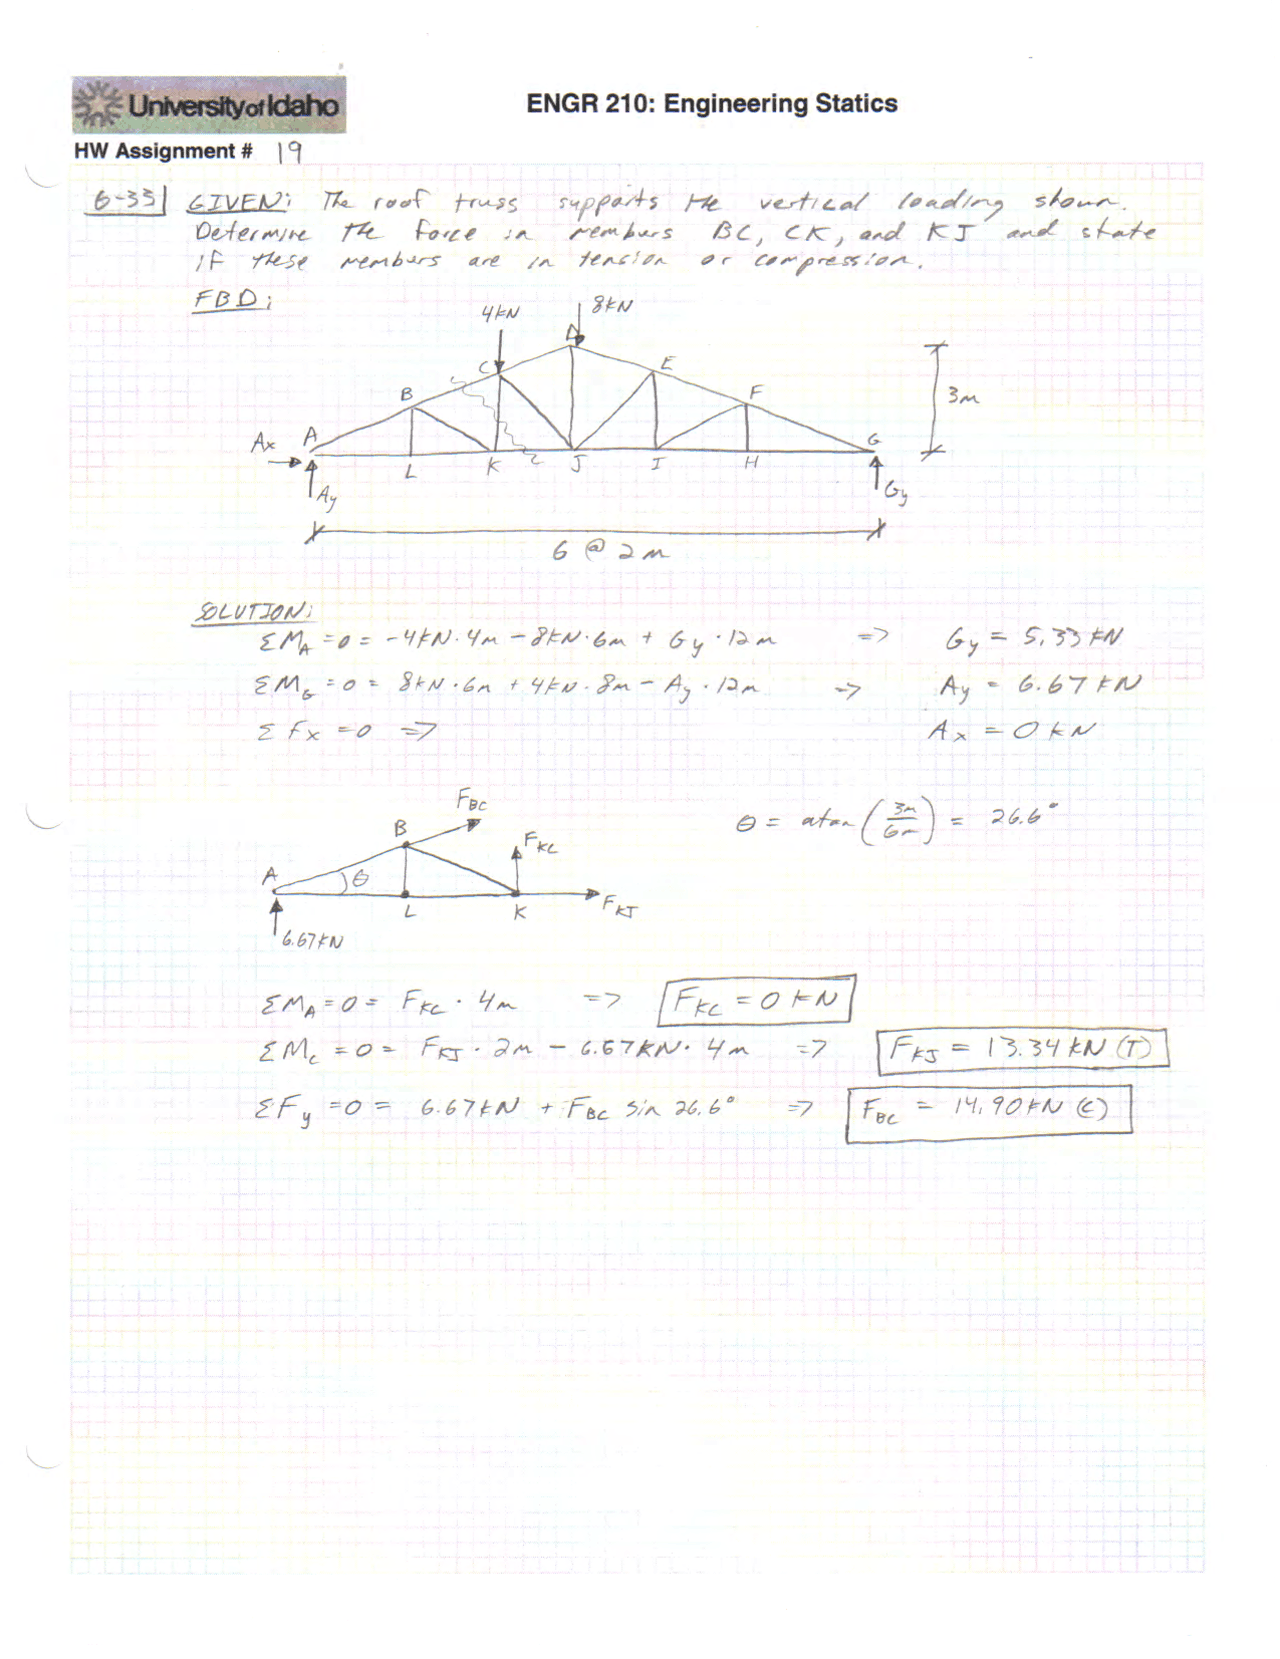 University of Idaho
ENGR 210: Engineering Statics
HW Assignment # 19
6-33 GIVEN: The roof truss supports the vertical loading shown.
Determine the force in members BC, CK, and KJ and state
if these members are in tension or compression.
FBD:
4kN
8kN
D
C
E
B
F
3m
Ax
A
G
L
K
J
I
H
Ay
Gy
6 @ 2m
SOLUTION:
ΣM_A = 0 = -4kN·4m - 8kN·6m + Gy·12m => Gy = 5.33 kN
ΣM_G = 0 = 8kN·6m + 4kN·8m - Ay·12m => Ay = 6.67 kN
ΣFx = 0 => Ax = 0 kN
F_BC
θ = atan (3m/6m) = 26.6°
B
F_KC
A
θ
L
K
F_KJ
6.67kN
ΣM_A = 0 = F_KC · 4m => F_KC = 0 kN
ΣM_C = 0 = F_KJ · 2m - 6.67kN · 4m => F_KJ = 13.34 kN (T)
ΣF_y = 0 = 6.67kN + F_BC sin 26.6° => F_BC = 14.90 kN (C)